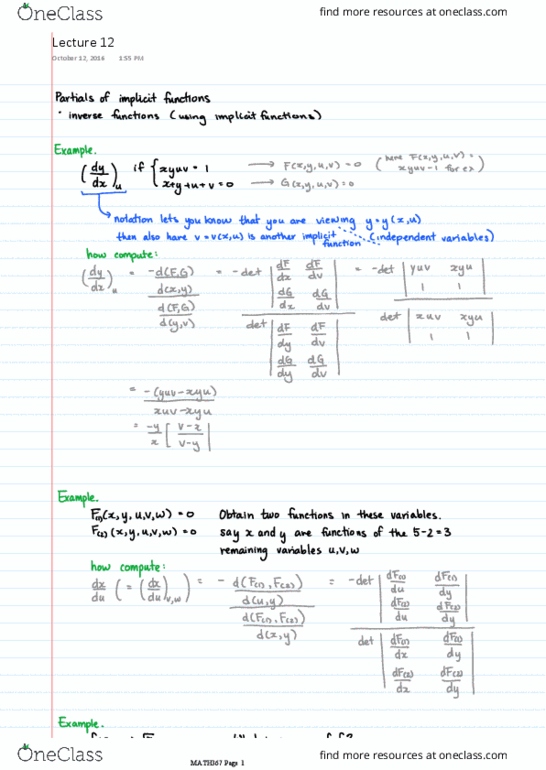 OneClass
find more resources at oneclass.com
Lecture 12
October 12, 2016 1:55 PM
Partials of implicit functions
• inverse functions (using implicit functions)
Example.
(dy/dx)u if { xyuv = 1 → F(x,y,u,v) = 0 (here F(x,y,u,v) = xyuv-1 for ex)
x+y+u+v = 0 → G(x,y,u,v) = 0
notation lets you know that you are viewing y=y(x,u)
then also have v=v(x,u) is another implicit function (independent variables)
how compute:
(dy/dx)u = -d(F,G)/d(x,y) / d(F,G)/d(y,v) = -det | dF/dx dF/dv dG/dx dG/dv | / det | dF/dy dF/dv dG/dy dG/dv | = -det | yuv xyu 1 1 | / det | xuv xyu 1 1 |
= -(yuv-xyu) / xuv-xyu
= -y/x [ v-x / v-y |
Example.
F(1)(x,y,u,v,w) = 0 Obtain two functions in these variables.
F(2)(x,y,u,v,w) = 0 say x and y are functions of the 5-2=3
remaining variables u,v,w
how compute:
dx/du ( = (dx/du)v,w ) = - d(F(1),F(2))/d(u,y) / d(F(1),F(2))/d(x,y) = -det | dF(1)/du dF(1)/dy dF(2)/du dF(2)/dy | / det | dF(1)/dx dF(1)/dy dF(2)/dx dF(2)/dy |
Example.
OneClass
MATH267 Page 1
find more resources at oneclass.com